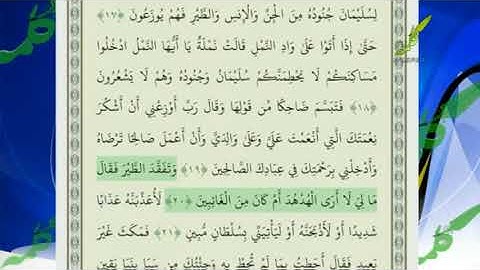 لِسُلَيْمَانَ جُنُودُهُ مِنَ الْجِنِّ وَالْإِنسِ وَالطَّيْرِ فَهُمْ يُوزَعُونَ ﴿١٧﴾
حَتَّىٰ إِذَا أَتَوْا عَلَىٰ وَادِ النَّمْلِ قَالَتْ نَمْلَةٌ يَا أَيُّهَا النَّمْلُ ادْخُلُوا
مَسَاكِنَكُمْ لَا يَحْطِمَنَّكُمْ سُلَيْمَانُ وَجُنُودُهُ وَهُمْ لَا يَشْعُرُونَ
﴿١٨﴾ فَتَبَسَّمَ ضَاحِكًا مِّن قَوْلِهَا وَقَالَ رَبِّ أَوْزِعْنِي أَنْ أَشْكُرَ
نِعْمَتَكَ الَّتِي أَنْعَمْتَ عَلَيَّ وَعَلَىٰ وَالِدَيَّ وَأَنْ أَعْمَلَ صَالِحًا تَرْضَاهُ
وَأَدْخِلْنِي بِرَحْمَتِكَ فِي عِبَادِكَ الصَّالِحِينَ ﴿١٩﴾ وَتَفَقَّدَ الطَّيْرَ فَقَالَ
مَا لِيَ لَا أَرَى الْهُدْهُدَ أَمْ كَانَ مِنَ الْغَائِبِينَ ﴿٢٠﴾ لَأُعَذِّبَنَّهُ عَذَابًا
شَدِيدًا أَوْ لَأَذْبَحَنَّهُ أَوْ لَيَأْتِيَنِّي بِسُلْطَانٍ مُّبِينٍ ﴿٢١﴾ فَمَكَثَ غَيْرَ
بَعِيدٍ فَقَالَ أَحَطتُ بِمَا لَمْ تُحِطْ بِهِ وَجِئْتُكَ مِن سَبَإٍ بِنَبَإٍ يَقِينٍ